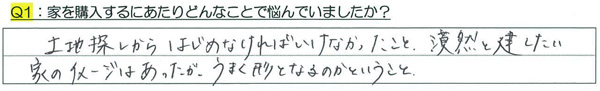 Q1:家を購入するにあたりどんなことで悩んでいましたか?
土地探しからはじめなければいけなかったこと、漠然と建したい
家のイメージはあったが、うまく形となるのかということ。